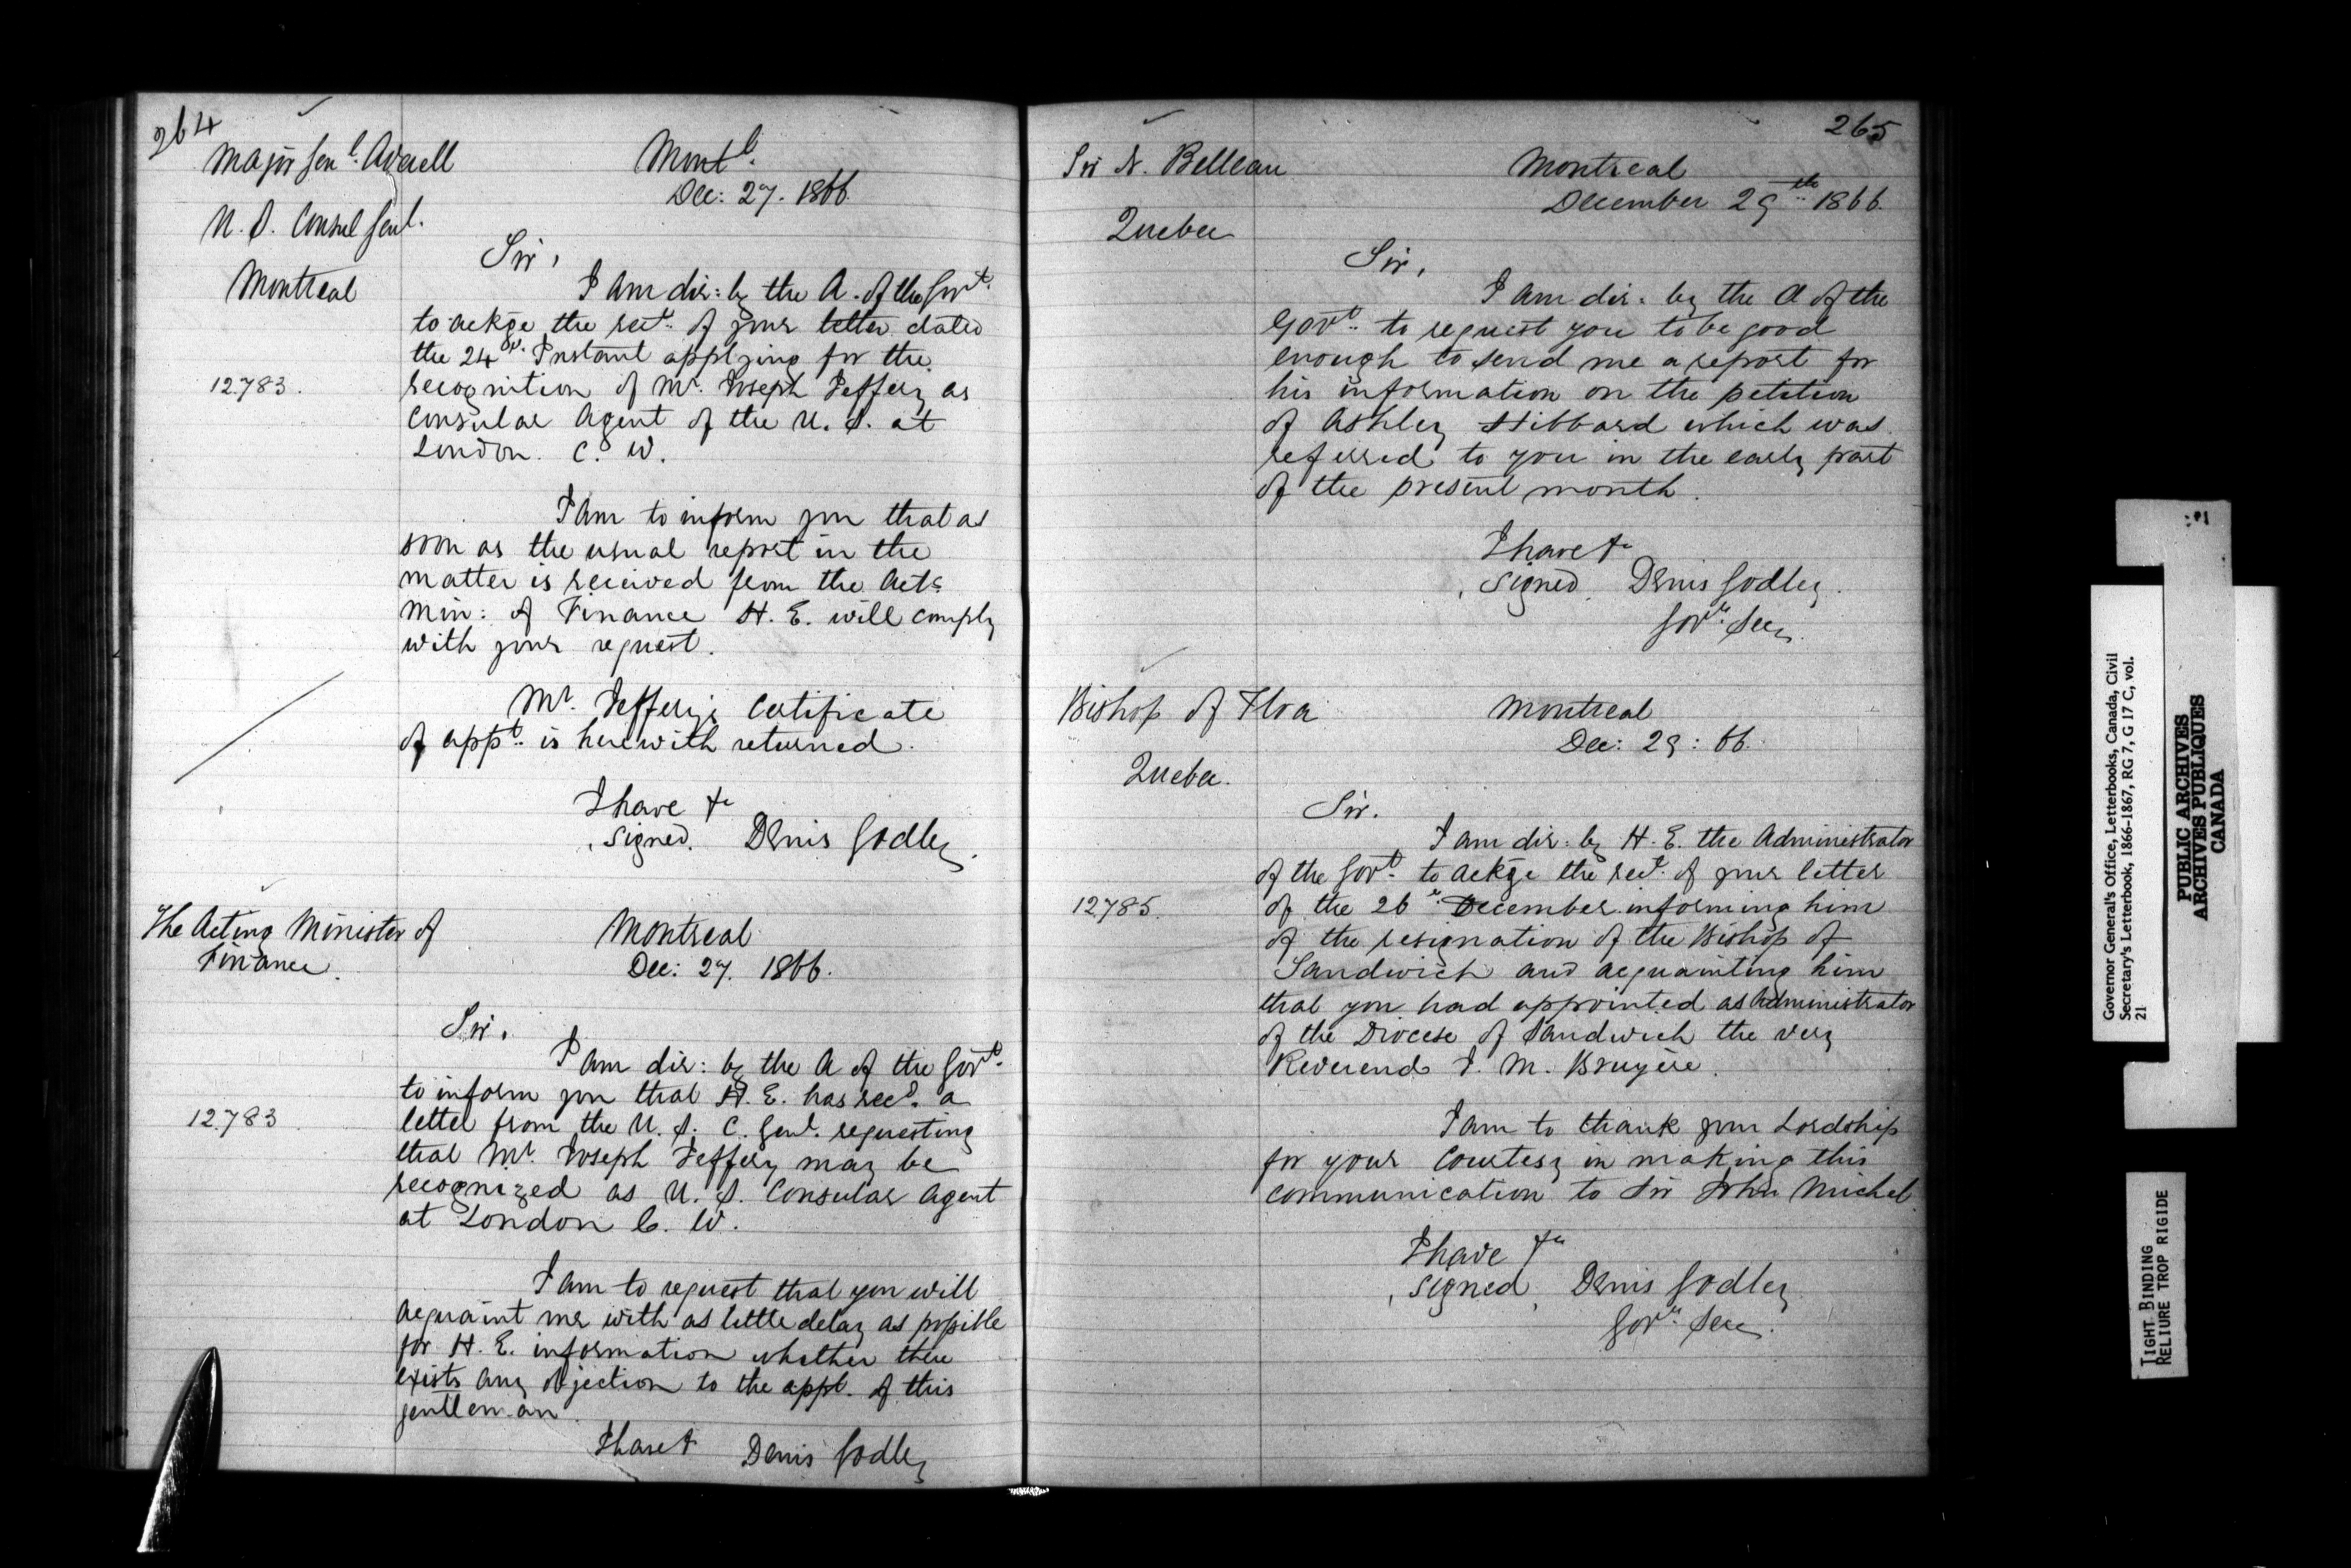 264
Major Genl. Averell
U. S. Consul Genl.
Montreal
Montl.
Dec: 27. 1866.
Sir,
I am dir: by the A. of the Govt.
to ackge the rect. of your letter dated
the 24th. Instant applying for the
12.783.
recognition of Mr. Joseph Jeffery as
Consular Agent of the U. S. at
London. C. W.
I am to inform you that as
soon as the usual report in the
matter is received from the Actg
Min: of Finance H. E. will comply
with your request.
Mr. Jeffery's Certificate
of appt. is herewith returned.
I have &c
signed. Denis Godley.
The Acting Minister of
Finance.
Montreal
Dec: 27. 1866.
Sir,
I am dir: by the A of the Govt.
to inform you that H. E. has recd. a
12.783
letter from the U. S. C. Genl. requesting
that Mr. Joseph Jeffery may be
recognized as U. S. Consular Agent
at London C. W.
I am to request that you will
acquaint me with as little delay as possible
for H. E. information whether there
exists any objection to the appt. of this
gentleman.
I have & Denis Godley
265
Sir N. Belleau
Quebec
Montreal
December 29th 1866.
Sir,
I am dir: by the A of the
Govt. to request you to be good
enough to send me a report for
his information on the petition
of Ashley Hibbard which was
referred to you in the early part
of the present month.
I have &c
signed, Denis Godley.
Govr. Secy.
Bishop of Tloa
Quebec.
Montreal
Dec: 29: 66.
Sir.
I am dir: by H. E. the Administrator
of the Govt. to ackge the rect. of your letter
12.785.
of the 26th December informing him
of the resignation of the Bishop of
Sandwich and acquainting him
that you had appointed as Administrator
of the Diocese of Sandwich the very
Reverend J. M. Bruyère.
I am to thank your Lordship
for your Courtesy in making this
communication to Sir John Michel.
I have &c
signed, Denis Godley.
Govr. Secy.
Governor General's Office, Letterbooks, Canada, Civil
Secretary's Letterbook, 1866-1867, RG 7, G 17 C, vol.
21
PUBLIC ARCHIVES
ARCHIVES PUBLIQUES
CANADA
TIGHT BINDING
RELIURE TROP RIGIDE